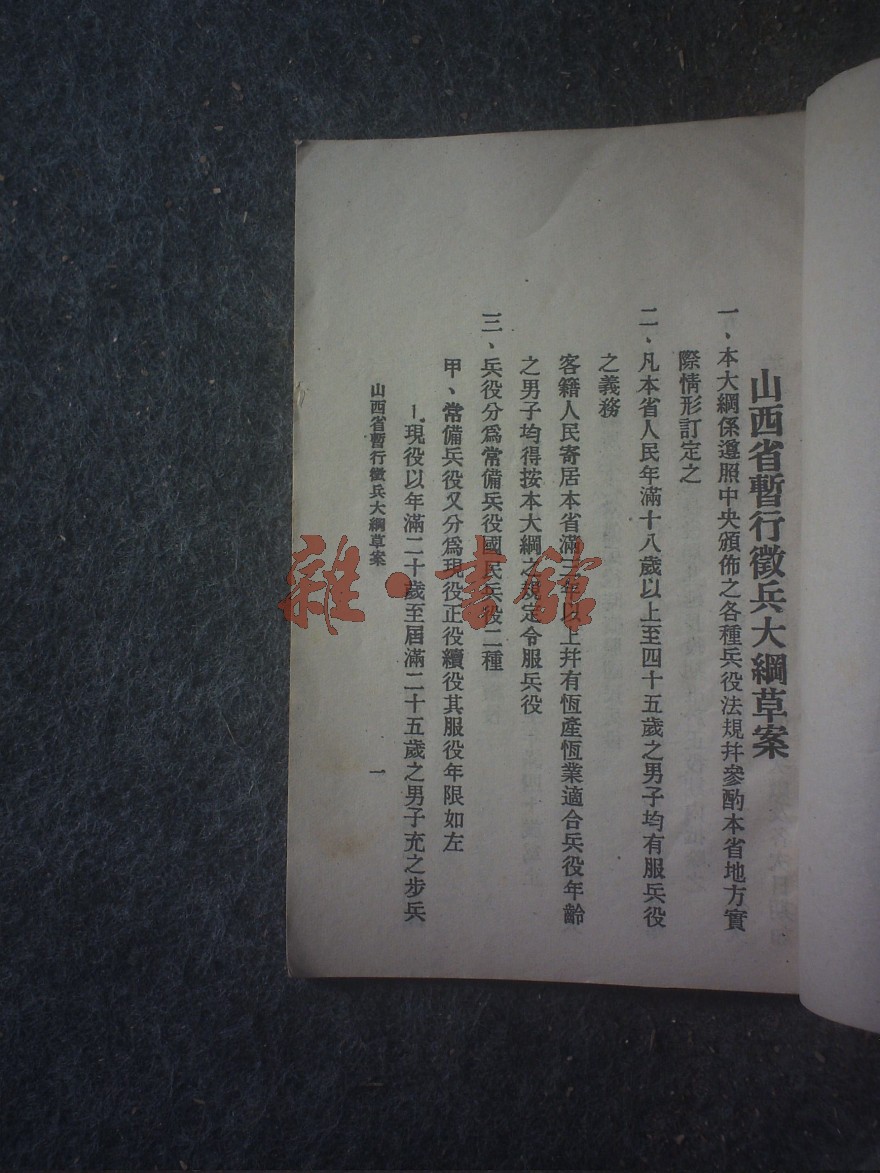 山西省暫行徵兵大綱草案
一、本大綱係遵照中央頒佈之各種兵役法規幷參酌本省地方實
際情形訂定之
二、凡本省人民年滿十八歲以上至四十五歲之男子均有服兵役
之義務
客籍人民寄居本省滿三年以上幷有恆產恆業適合兵役年齡
之男子均得按本大綱之規定令服兵役
三、兵役分爲常備兵役國民兵役二種
甲、常備兵役又分爲現役正役續役其服役年限如左
1.現役以年滿二十歲至屆滿二十五歲之男子充之步兵
山西省暫行徵兵大綱草案
一
雜·書館